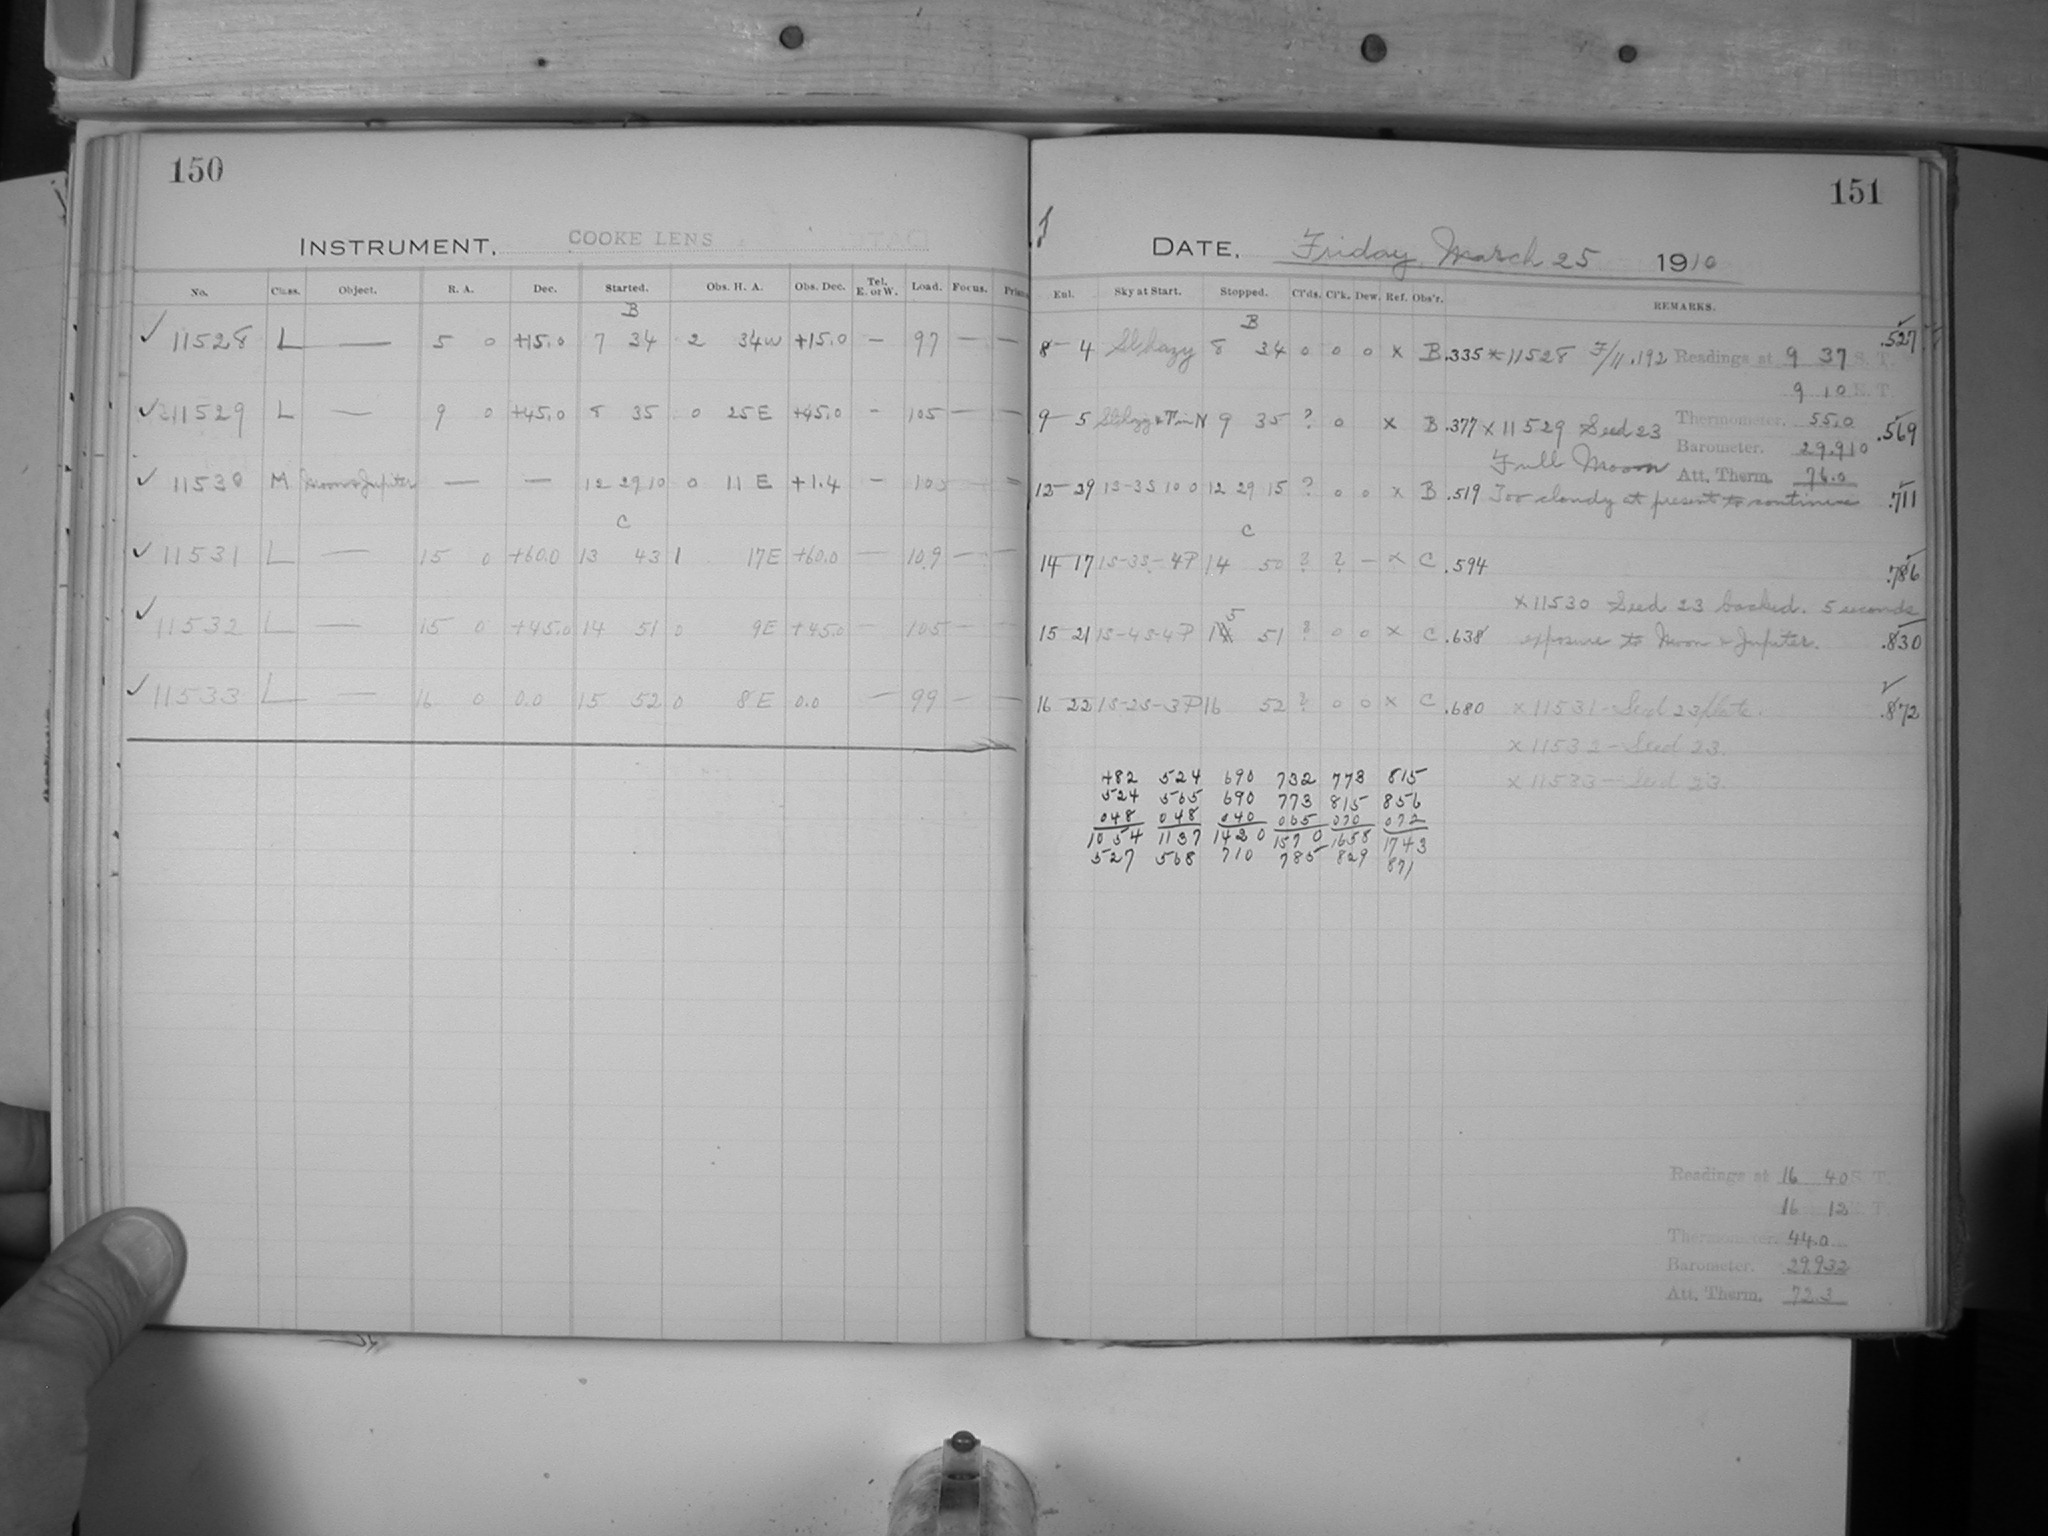 150
INSTRUMENT. COOKE LENS
No. Class. Object. R. A. Dec. Started. Obs. H. A. Obs. Dec. Tel. E. or W. Load. Focus.
B
11528 L — 5 0 +15.0 7 34 2 34W +15.0 — 97 — —
11529 L — 9 0 +45.0 8 35 0 25E +45.0 - 105 — —
11530 M Moon & Jupiter — — 12 29 10 0 11 E +1.4 - 105 — =
C
11531 L — 15 0 +60.0 13 43 1 17E +60.0 — 109 — —
11532 L — 15 0 +45.0 14 51 0 9E +45.0 — 105 — —
11533 L — 16 0 0.0 15 52 0 8E 0.0 — 99 — —
151
DATE. Friday, March 25 1910
Enl. Sky at Start. Stopped. Cl'ds. Cl'k. Dew. Ref. Obs'r. REMARKS.
B
8-4 Sl. hazy 8 34 0 0 0 x B .335 x 11528 F/11 .192 Readings at 9 37 S. T. .527
9 10 E. T.
9-5 9 35 ? 0 x B .377 x 11529 Seed 23 Thermometer. 55.0 .569
Barometer. 29.910
Full Moon Att. Therm. 76.0
12-29 1S-3S 10 0 12 29 15 ? 0 0 x B .519 Too cloudy at present to continue .711
C
14 17 1S-3S-4P 14 50 ? ? — x C .594 .786
x 11530 Seed 23 backed. 5 seconds
15 21 1S-4S-4P 15 51 ? 0 0 x C .638 exposure to Moon & Jupiter. .830
16 22 1S-2S-3P 16 52 ? 0 0 x C .680 x 11531-Seed 23 plate. .872
x 11532-Seed 23.
x 11533-Seed 23.
482 524 690 732 773 815
524 565 690 773 815 856
048 048 040 065 070 072
1054 1137 1420 1570 1658 1743
527 568 710 785 829 871
Readings at 16 40 S. T.
16 12 E. T.
Thermometer. 44.0
Barometer. 29.932
Att. Therm. 72.3